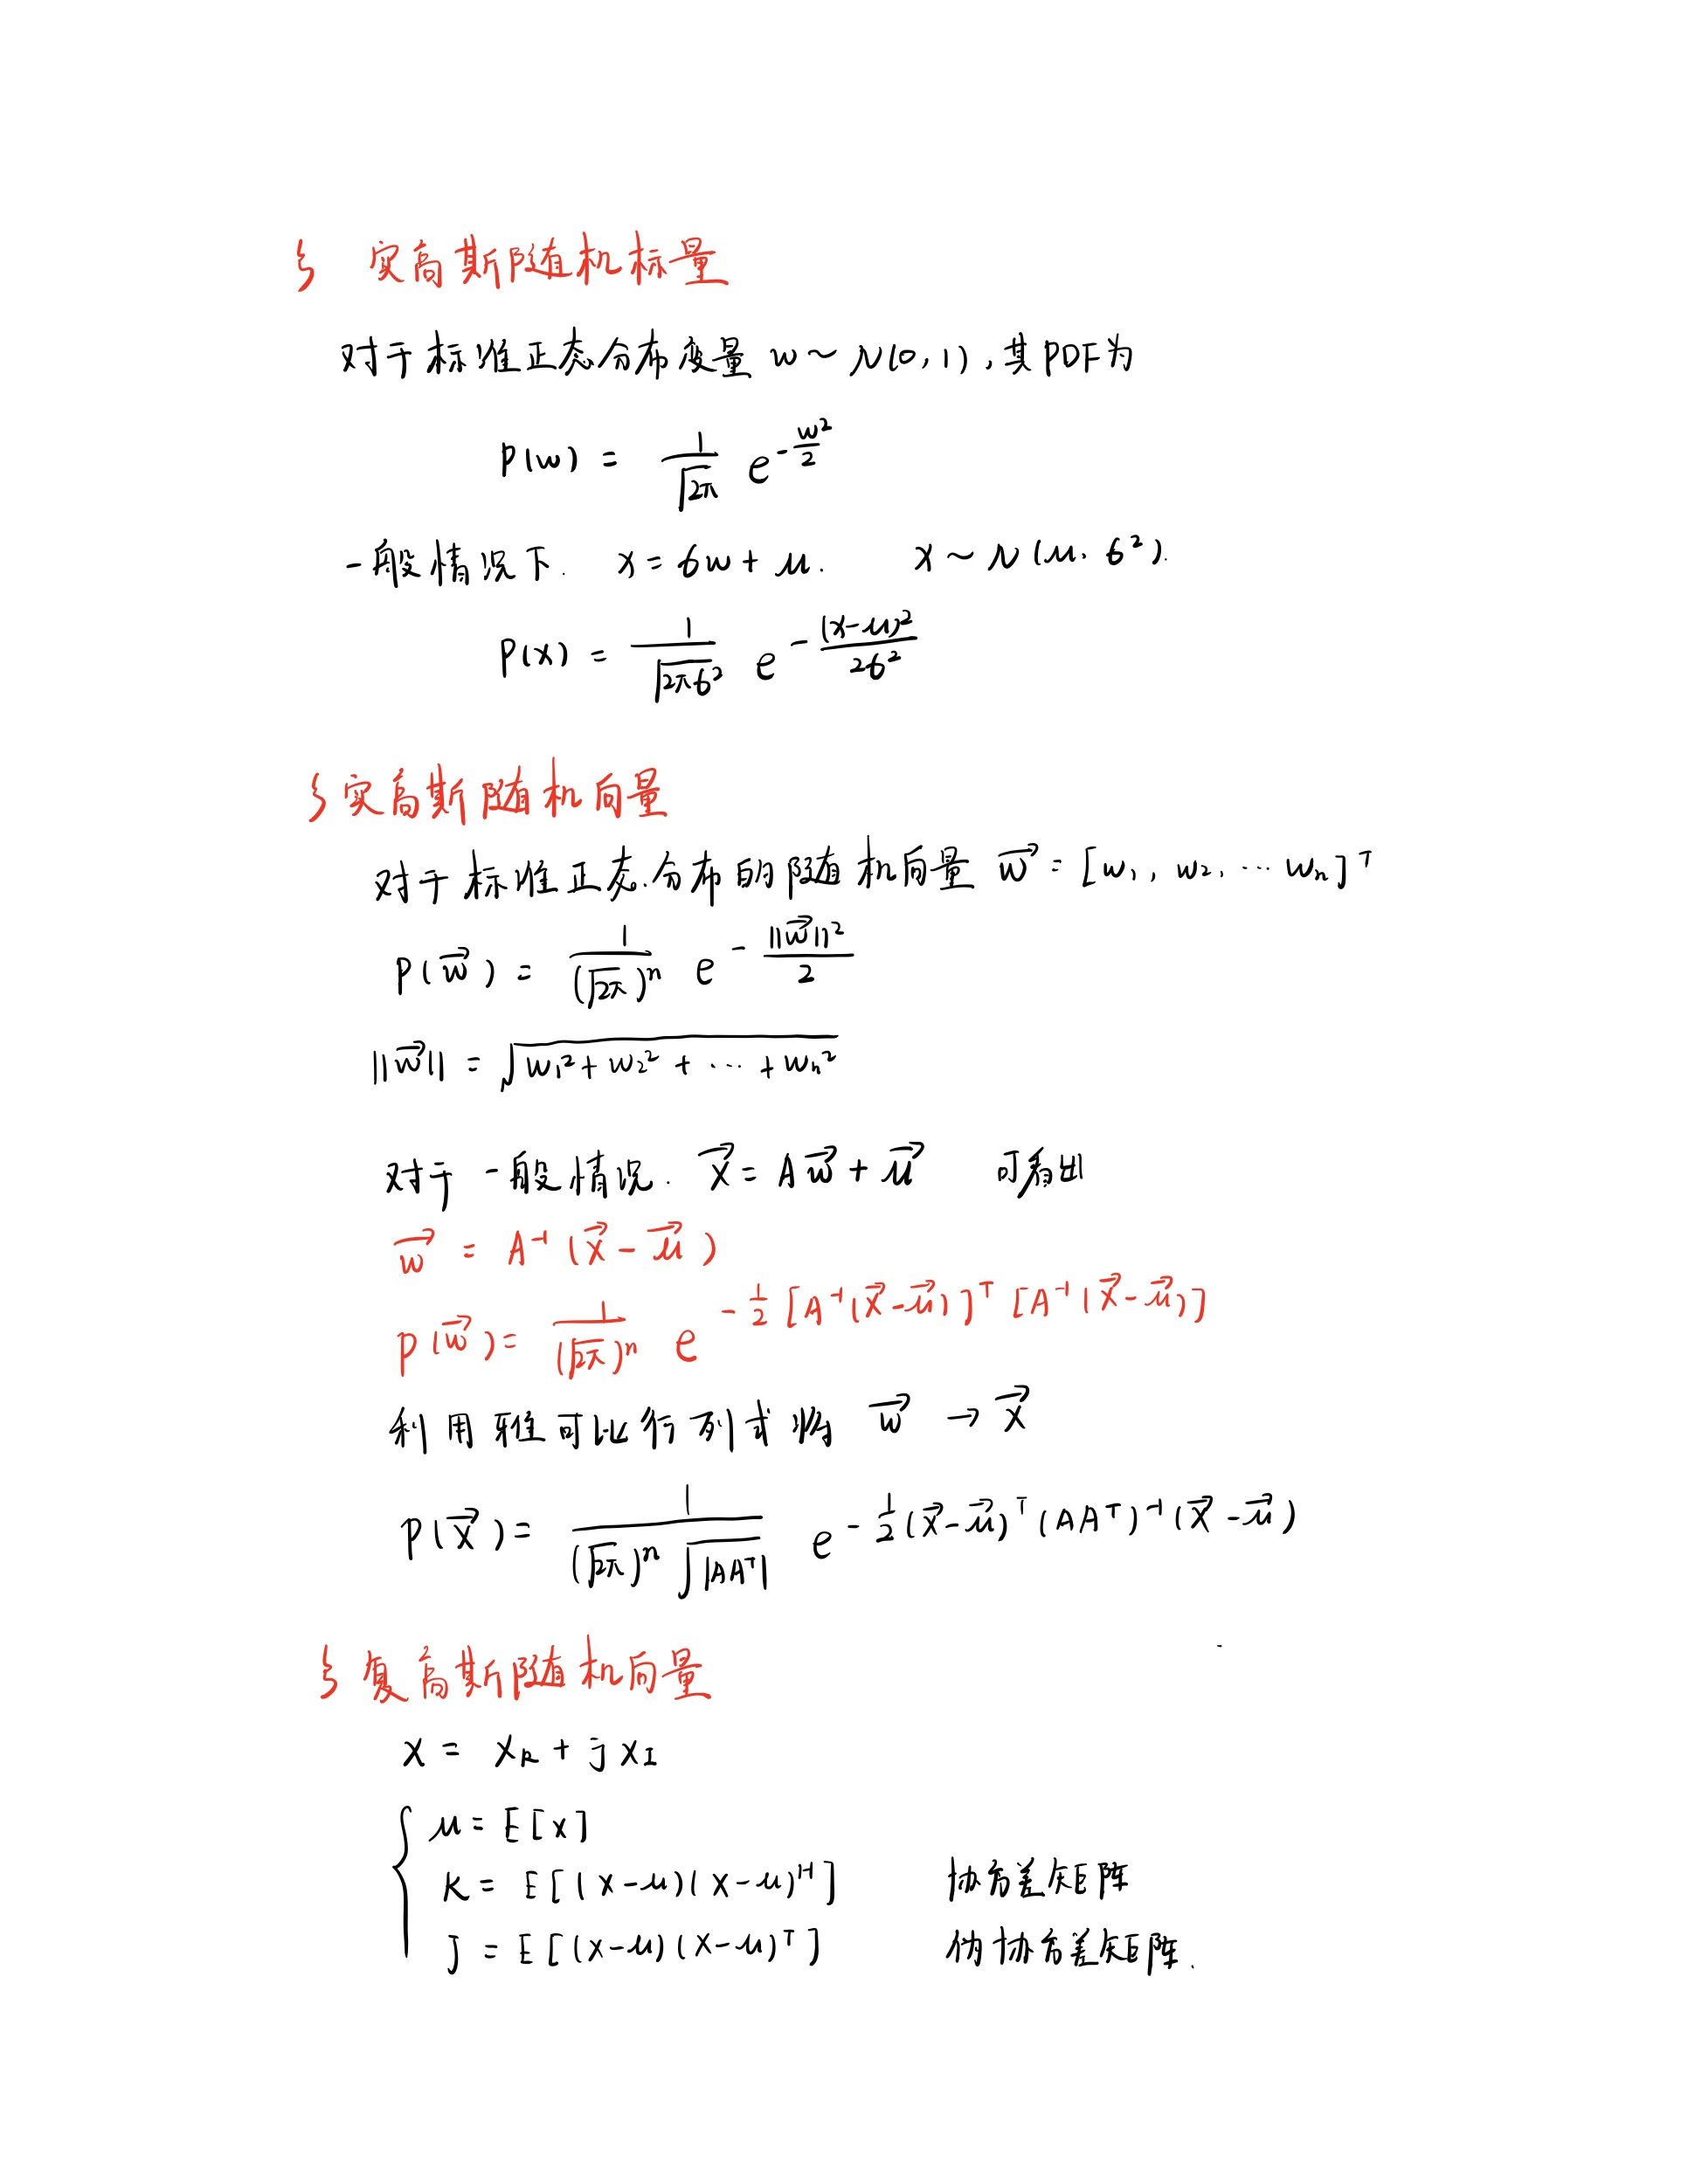 § 实高斯随机标量
对于标准正态分布变量 w ~ N(0,1), 其PDF为
P(w) = \frac{1}{\sqrt{2π}} e^{-\frac{w^2}{2}}
一般情况下. x = σw + μ. x ~ N(μ, σ^2).
P(x) = \frac{1}{\sqrt{2πσ^2}} e^{-\frac{(x-μ)^2}{2σ^2}}
§ 实高斯随机向量
对于标准正态分布的随机向量 \vec{w} = [w_1, w_2, ... w_n]^T
P(\vec{w}) = \frac{1}{(\sqrt{2π})^n} e^{-\frac{||\vec{w}||^2}{2}}
||\vec{w}|| = \sqrt{w_1^2 + w_2^2 + ... + w_n^2}
对于一般情况. \vec{x} = A\vec{w} + \vec{μ} 可看出
\vec{w} = A^{-1}(\vec{x} - \vec{μ})
P(\vec{w}) = \frac{1}{(\sqrt{2π})^n} e^{-\frac{1}{2}[A^{-1}(\vec{x}-\vec{μ})]^T [A^{-1}(\vec{x}-\vec{μ})]}
利用雅可比行列式将 \vec{w} → \vec{x}
P(\vec{x}) = \frac{1}{(\sqrt{2π})^n \sqrt{|AA^T|}} e^{-\frac{1}{2}(\vec{x}-\vec{μ})^T (AA^T)^{-1} (\vec{x}-\vec{μ})}
§ 复高斯随机向量
x = x_R + j x_I
μ = E[x]
K = E[(x-μ)(x-μ)^H] 协方差矩阵
J = E[(x-μ)(x-μ)^T] 伪协方差矩阵.